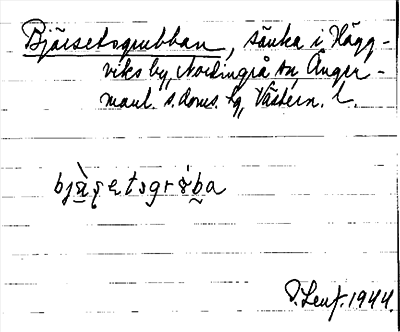 Bjärsetsgrubban, sänka i Hägg-
viks by, Nordingrå sn, Ånger-
manl. s. doms. hg, Västern. l.
bjàṣetsgrɞ̀ba
P. Lenf. 1944.